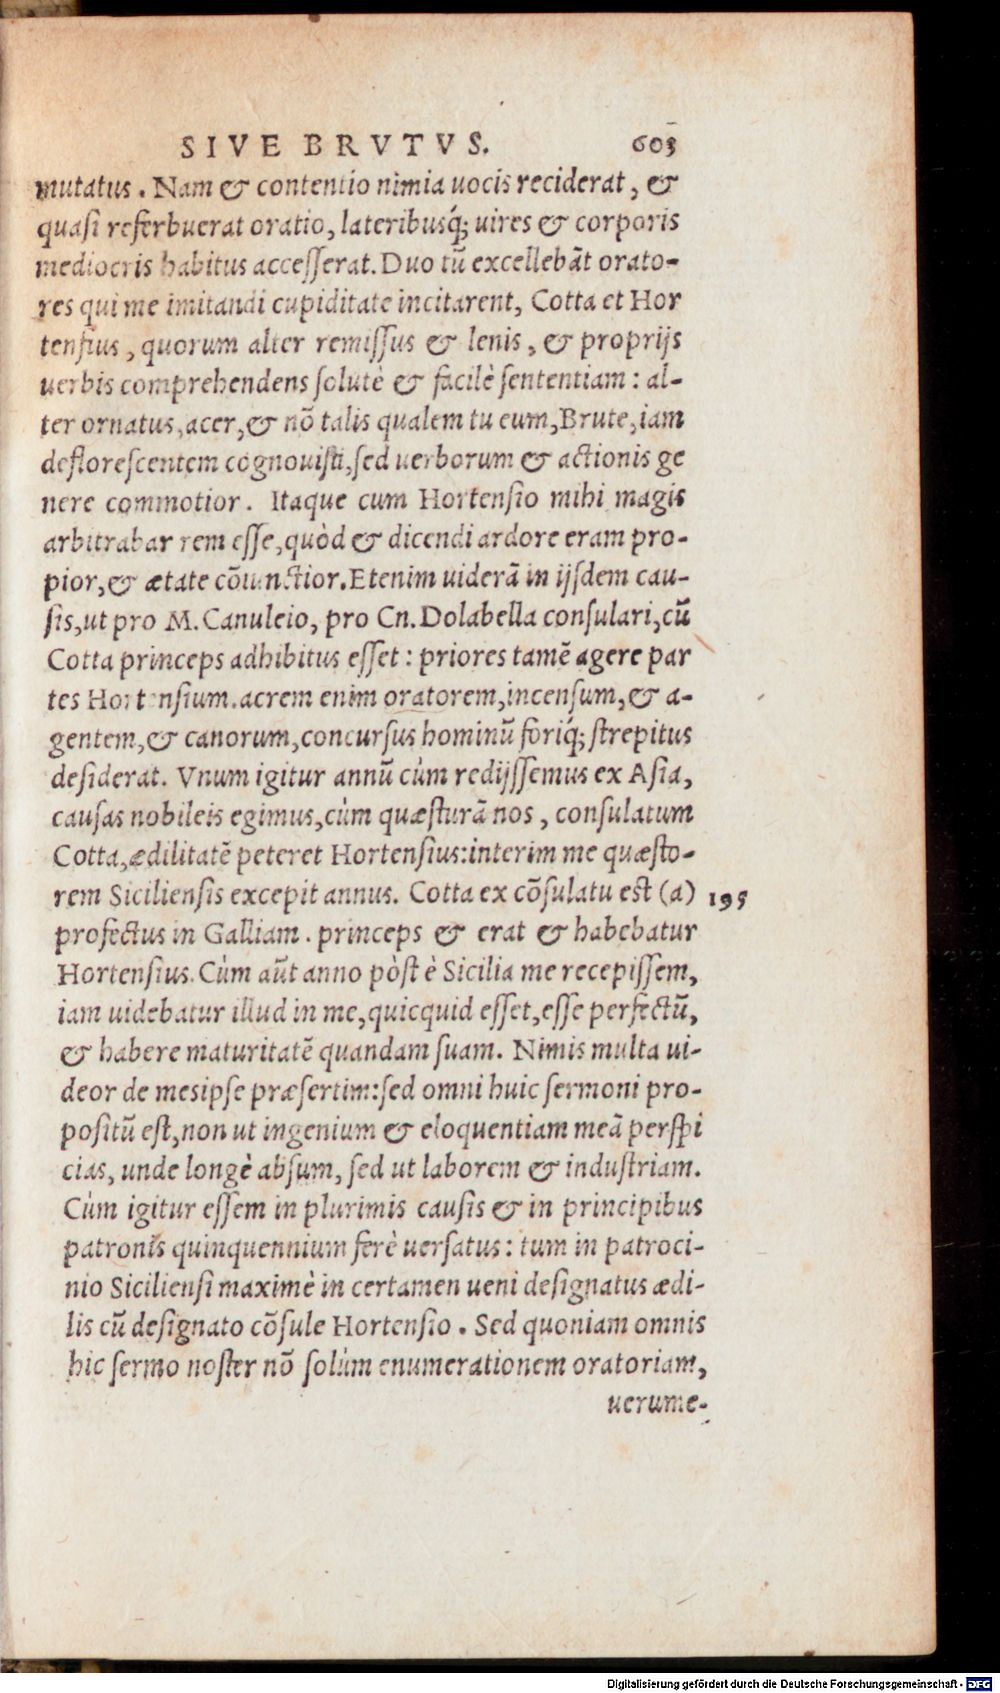 SIVE BRVTVS. 603
mutatus. Nam & contentio nimia uocis reciderat, &
quasi referbuerat oratio, lateribusq́; uires & corporis
mediocris habitus accesserat. Duo tũ excellebãt orato-
res qui me imitandi cupiditate incitarent, Cotta et Hor
tensius, quorum alter remissus & lenis, & proprijs
uerbis comprehendens solutè & facilè sententiam: al-
ter ornatus, acer, & nõ talis qualem tu eum, Brute, iam
deflorescentem cognouisti, sed uerborum & actionis ge
nere commotior. Itaque cum Hortensio mihi magis
arbitrabar rem esse, quòd & dicendi ardore eram pro-
pior, & ætate cõiunctior. Etenim uiderã in ijsdem cau-
sis, ut pro M. Canuleio, pro Cn. Dolabella consulari, cũ
Cotta princeps adhibitus esset: priores tamẽ agere par
tes Hortensium. acrem enim oratorem, incensum, & a-
gentem, & canorum, concursus hominũ foriq́; strepitus
desiderat. Vnum igitur annũ cùm redijssemus ex Asia,
causas nobileis egimus, cùm quæsturã nos, consulatum
Cotta, ædilitatẽ peteret Hortensius: interim me quæsto-
rem Siciliensis excepit annus. Cotta ex cõsulatu est (a) 195
profectus in Galliam. princeps & erat & habebatur
Hortensius. Cùm aũt anno pòst è Sicilia me recepissem,
iam uidebatur illud in me, quicquid esset, esse perfectũ,
& habere maturitatẽ quandam suam. Nimis multa ui-
deor de mesipse præsertim: sed omni huic sermoni pro-
positũ est, non ut ingenium & eloquentiam meã perspi
cias, unde longè absum, sed ut laborem & industriam.
Cùm igitur essem in plurimis causis & in principibus
patronis quinquennium ferè uersatus: tum in patroci-
nio Siciliensi maximè in certamen ueni designatus ædi-
lis cũ designato cõsule Hortensio. Sed quoniam omnis
hic sermo noster nõ solùm enumerationem oratoriam,
uerume-
Digitalisierung gefördert durch die Deutsche Forschungsgemeinschaft - DFG